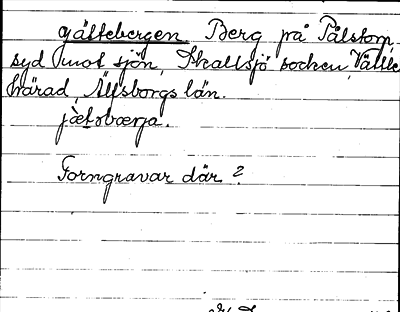 Gältebergen Berg på Pålstorp,
syd mot sjön, Skallsjö socken, Vättle
härad, Älvsborgs län.
jætsbærja.
Forngravar där?